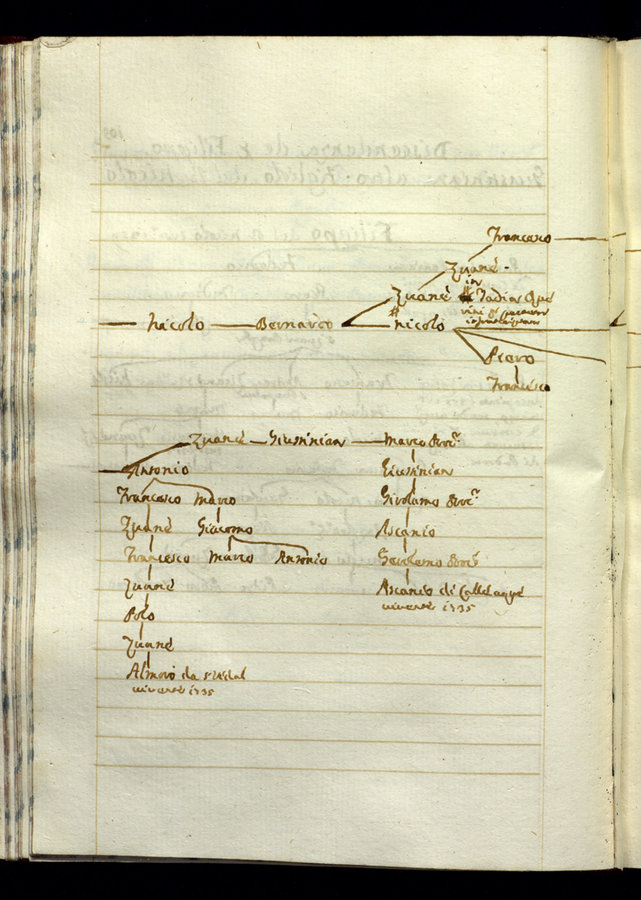 Francesco
Zuanè
Zuanè in Tadia Que
Nicolo Bernardo Nicolo
Piero
Francesco
Zuanè Giustinian Marco Procr
Antonio Giustinian
Francesco Marco Girolamo Procr
Zuanè Giacomo Ascanio
Francesco Marco Antonio Girolamo Procr
Zuanè Ascanio di Calle
vivente 1735
Polo
Zuanè
Almorò da
vivente 1735